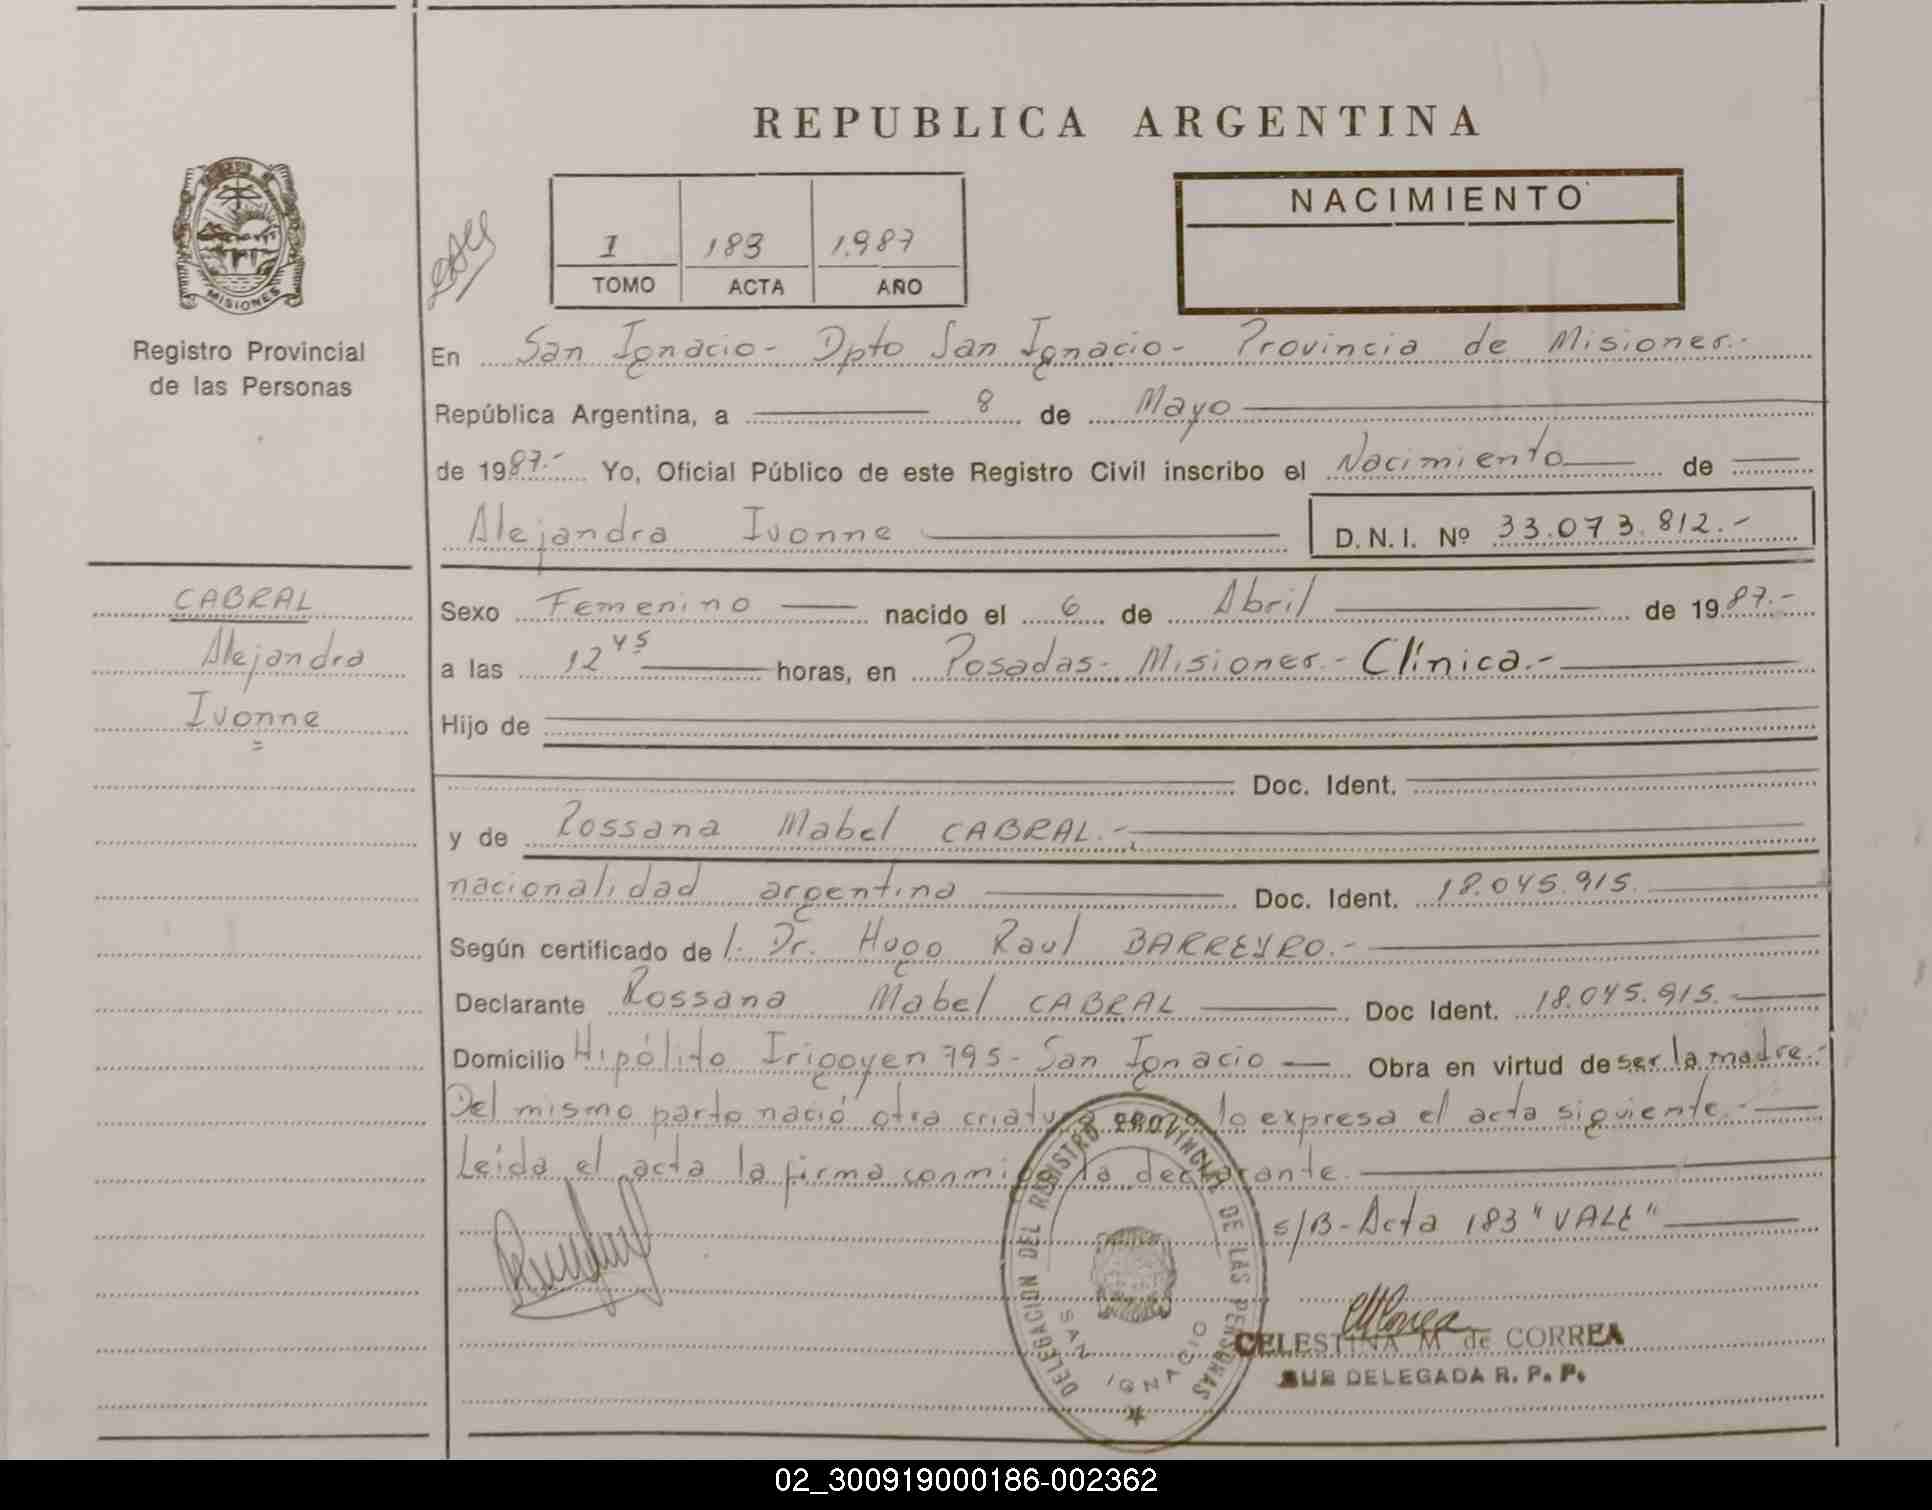 REPUBLICA ARGENTINA
MISIONES
Registro Provincial
de las Personas
I 183 1.987
TOMO ACTA AÑO
NACIMIENTO
En San Ignacio - Dpto San Ignacio - Provincia de Misiones.-
República Argentina, a 8 de Mayo
de 1987.- Yo, Oficial Público de este Registro Civil inscribo el Nacimiento de
Alejandra Ivonne D.N.I. Nº 33.073.812.-
CABRAL
Alejandra
Ivonne
Sexo Femenino nacido el 6 de Abril de 1987.-
a las 12 45 horas, en Posadas - Misiones.- Clínica.-
Hijo de
Doc. Ident.
y de Rossana Mabel CABRAL.-
nacionalidad argentina Doc. Ident. 18.045.915.
Según certificado de l. Dr. Hugo Raul BARREYRO.-
Declarante Rossana Mabel CABRAL Doc Ident. 18.045.915.
Domicilio Hipólito Irigoyen 795 - San Ignacio Obra en virtud de ser la madre.-
Del mismo parto nació otra criatura como lo expresa el acta siguiente.-
Leída el acta la firma conmigo la declarante.
s/B - Acta 183 "VALE"
DELEGACION DEL REGISTRO PROVINCIAL DE LAS PERSONAS
SAN IGNACIO
CELESTINA M de CORREA
SUB DELEGADA R. P. P.
02_300919000186-002362